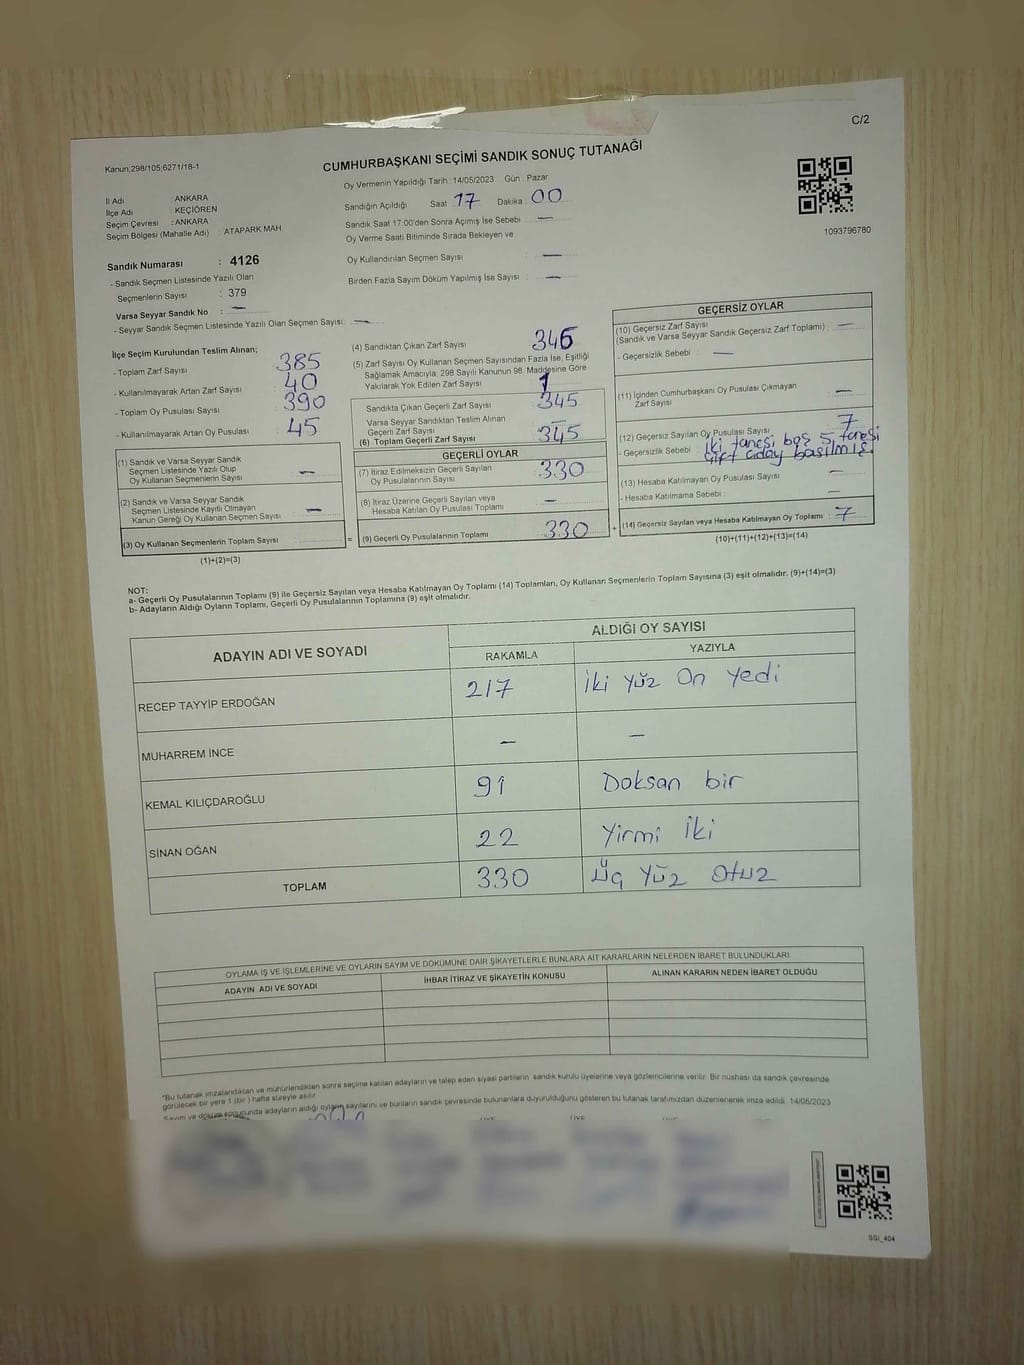 C/2
Kanun,298/105;6271/18-1
CUMHURBAŞKANI SEÇİMİ SANDIK SONUÇ TUTANAĞI
Oy Vermenin Yapıldığı Tarih : 14/05/2023 Gün : Pazar
Sandığın Açıldığı Saat 17 Dakika 00
Sandık Saat 17:00'den Sonra Açımış İse Sebebi : —
Oy Verme Saati Bitiminde Sırada Bekleyen ve
Oy Kullandırılan Seçmen Sayısı : —
Birden Fazla Sayım Döküm Yapılmış İse Sayısı : —
1093796780
İl Adı : ANKARA
İlçe Adı : KEÇİÖREN
Seçim Çevresi : ANKARA
Seçim Bölgesi (Mahalle Adı) : ATAPARK MAH
Sandık Numarası : 4126
- Sandık Seçmen Listesinde Yazılı Olan
Seçmenlerin Sayısı : 379
Varsa Seyyar Sandık No : —
- Seyyar Sandık Seçmen Listesinde Yazılı Olan Seçmen Sayısı: —
İlçe Seçim Kurulundan Teslim Alınan;
- Toplam Zarf Sayısı 385
- Kullanılmayarak Artan Zarf Sayısı 40
- Toplam Oy Pusulası Sayısı 390
- Kullanılmayarak Artan Oy Pusulası 45
(1) Sandık ve Varsa Seyyar Sandık
Seçmen Listesinde Yazılı Olup
Oy Kullanan Seçmenlerin Sayısı —
(2) Sandık ve Varsa Seyyar Sandık
Seçmen Listesinde Kayıtlı Olmayan
Kanun Gereği Oy Kullanan Seçmen Sayısı —
(3) Oy Kullanan Seçmenlerin Toplam Sayısı
(1)+(2)=(3)
(4) Sandıktan Çıkan Zarf Sayısı 346
(5) Zarf Sayısı Oy Kullanan Seçmen Sayısından Fazla İse, Eşitliği
Sağlamak Amacıyla; 298 Sayılı Kanunun 98. Maddesine Göre
Yakılarak Yok Edilen Zarf Sayısı 1
Sandıkta Çıkan Geçerli Zarf Sayısı 345
Varsa Seyyar Sandıktan Teslim Alınan
Geçerli Zarf Sayısı —
(6) Toplam Geçerli Zarf Sayısı 345
GEÇERLİ OYLAR
(7) İtiraz Edilmeksizin Geçerli Sayılan
Oy Pusulalarının Sayısı 330
(8) İtiraz Üzerine Geçerli Sayılan veya
Hesaba Katılan Oy Pusulası Toplamı —
= (9) Geçerli Oy Pusulalarının Toplamı 330
GEÇERSİZ OYLAR
(10) Geçersiz Zarf Sayısı
(Sandık ve Varsa Seyyar Sandık Geçersiz Zarf Toplamı) : —
- Geçersizlik Sebebi : —
(11) İçinden Cumhurbaşkanı Oy Pusulası Çıkmayan
Zarf Sayısı —
(12) Geçersiz Sayılan Oy Pusulası Sayısı : 7
- Geçersizlik Sebebi iki tanesi boş 5 tanesi
çift aday basılmış
(13) Hesaba Katılmayan Oy Pusulası Sayısı —
- Hesaba Katılmama Sebebi : —
+ (14) Geçersiz Sayılan veya Hesaba Katılmayan Oy Toplamı : 7
(10)+(11)+(12)+(13)=(14)
NOT:
a- Geçerli Oy Pusulalarının Toplamı (9) ile Geçersiz Sayılan veya Hesaba Katılmayan Oy Toplamı (14) Toplamları, Oy Kullanan Seçmenlerin Toplam Sayısına (3) eşit olmalıdır. (9)+(14)=(3)
b- Adayların Aldığı Oyların Toplamı, Geçerli Oy Pusulalarının Toplamına (9) eşit olmalıdır.
ADAYIN ADI VE SOYADI ALDIĞI OY SAYISI
RAKAMLA YAZIYLA
RECEP TAYYİP ERDOĞAN 217 İki Yüz On Yedi
MUHARREM İNCE — —
KEMAL KILIÇDAROĞLU 91 Doksan bir
SİNAN OĞAN 22 Yirmi İki
TOPLAM 330 Üç Yüz Otuz
OYLAMA İŞ VE İŞLEMLERİNE VE OYLARIN SAYIM VE DÖKÜMÜNE DAİR ŞİKAYETLERLE BUNLARA AİT KARARLARIN NELERDEN İBARET BULUNDUKLARI
ADAYIN ADI VE SOYADI İHBAR İTİRAZ VE ŞİKAYETİN KONUSU ALINAN KARARIN NEDEN İBARET OLDUĞU
*Bu tutanak imzalandıktan ve mühürlendikten sonra seçime katılan adayların ve talep eden siyasi partilerin sandık kurulu üyelerine veya gözlemcilerine verilir. Bir nüshası da sandık çevresinde
görülecek bir yere 1 (bir ) hafta süreyle asılır.
Sayım ve döküm sonucunda adayların aldığı oyların sayılarını ve bunların sandık çevresinde bulunanlara duyurulduğunu gösteren bu tutanak tarafımızdan düzenlenerek imza edildi. 14/05/2023
ÜYE ÜYE ÜYE
SSI_404